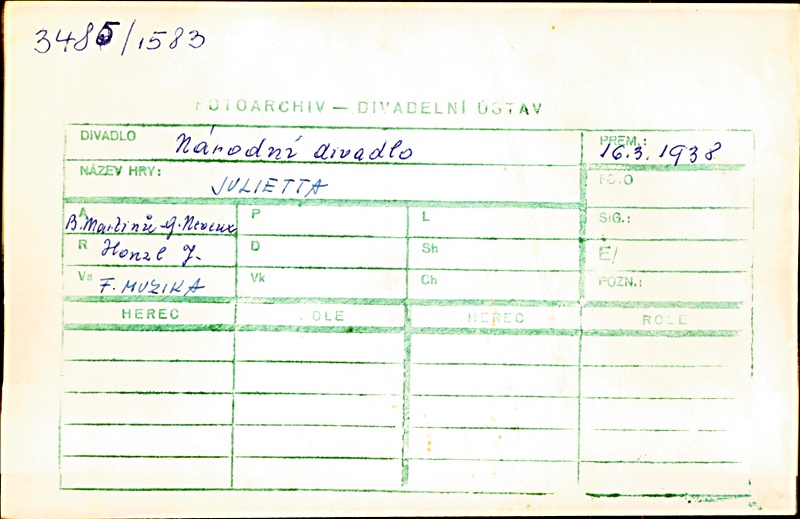 3485/1583
FOTOARCHIV — DIVADELNÍ ÚSTAV
DIVADLO Národní divadlo
PREM.: 16.3.1938
NÁZEV HRY: JULIETTA
FOTO
A B. Martinů - G. Neveux
P
L
SIG.:
R Honzl J.
D
Sh
Č/
Vs F. MUZIKA
Vk
Ch
POZN.:
HEREC ROLE HEREC ROLE